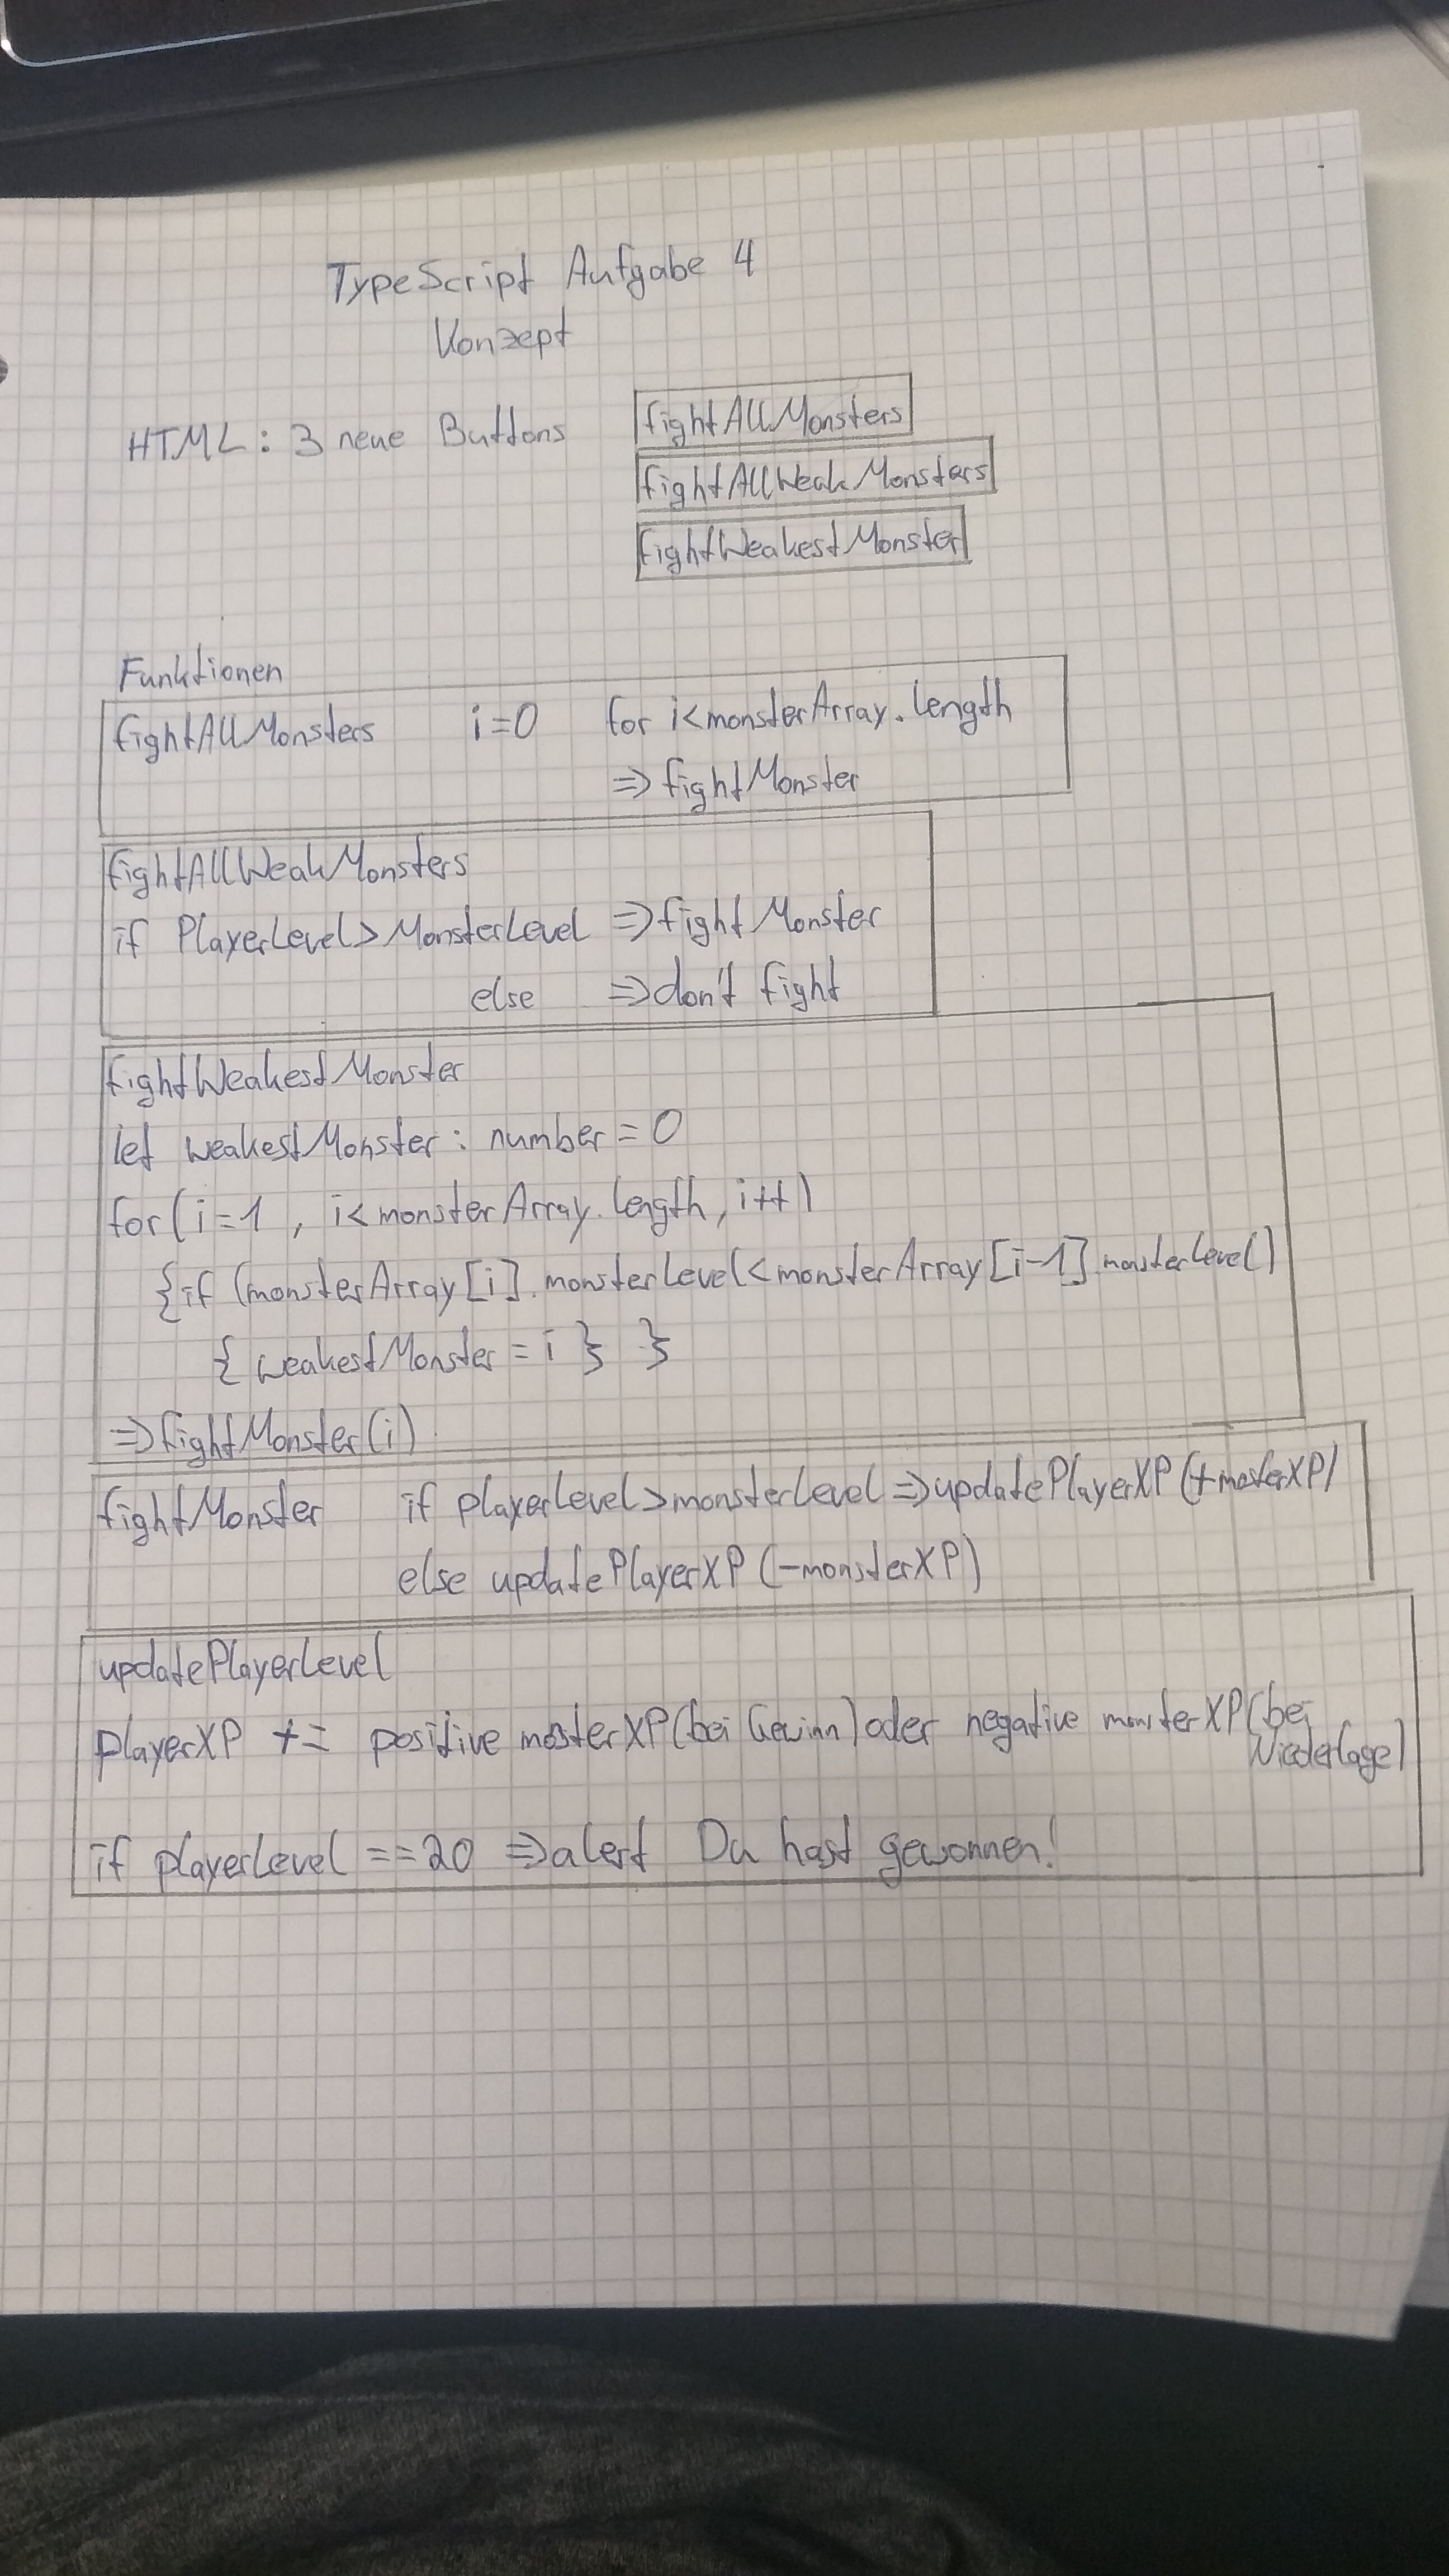 TypeScript Aufgabe 4
Konzept
HTML: 3 neue Buttons
fightAllMonsters
fightAllWeakMonsters
fightWeakestMonster
Funktionen
fightAllMonsters i=0 for i<monsterArray.length
=> fightMonster
fightAllWeakMonsters
if PlayerLevel > MonsterLevel => fightMonster
else => don't fight
fightWeakestMonster
let weakestMonster: number = 0
for(i=1, i<monsterArray.length, i++)
{if (monsterArray[i].monsterLevel<monsterArray[i-1].monsterLevel)
{ weakestMonster = i } }
=> fightMonster(i)
fightMonster if playerLevel>monsterLevel => updatePlayerXP (+mosterXP)
else updatePlayerXP (-monsterXP)
updatePlayerLevel
playerXP += positive mosterXP(bei Gewinn) oder negative monsterXP(bei
Niederlage)
if playerLevel ==20 => alert Du hast gewonnen!